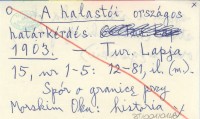 A halastói országos
határkérdés.
1903. — Tur. Lapja
15, nr 1-5: 12-81, il. (m).
Spór o granicę przy
Morskim Oku: historia